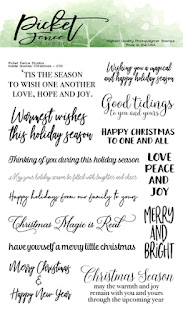 Picket
Fence
Highest Quality Photopolymer Stamps
Made in the USA
Picket Fence Studios
'TIS THE SEASON
TO WISH ONE ANOTHER
LOVE, HOPE AND JOY.
Warmest wishes
this holiday season
Thinking of you during this holiday season
May your holiday season be filled with laughter and cheer
Happy holidays from our family to yours
Christmas Magic is Real
have yourself a merry little christmas
Merry
Christmas
&
Happy New Year
Wishing you a magical
and happy holiday season
Good tidings
to you and yours
HAPPY CHRISTMAS
TO ONE AND ALL
LOVE
PEACE
AND
JOY
MERRY
AND
BRIGHT
Christmas Season
may the warmth and joy
remain with you and yours
through the upcoming year